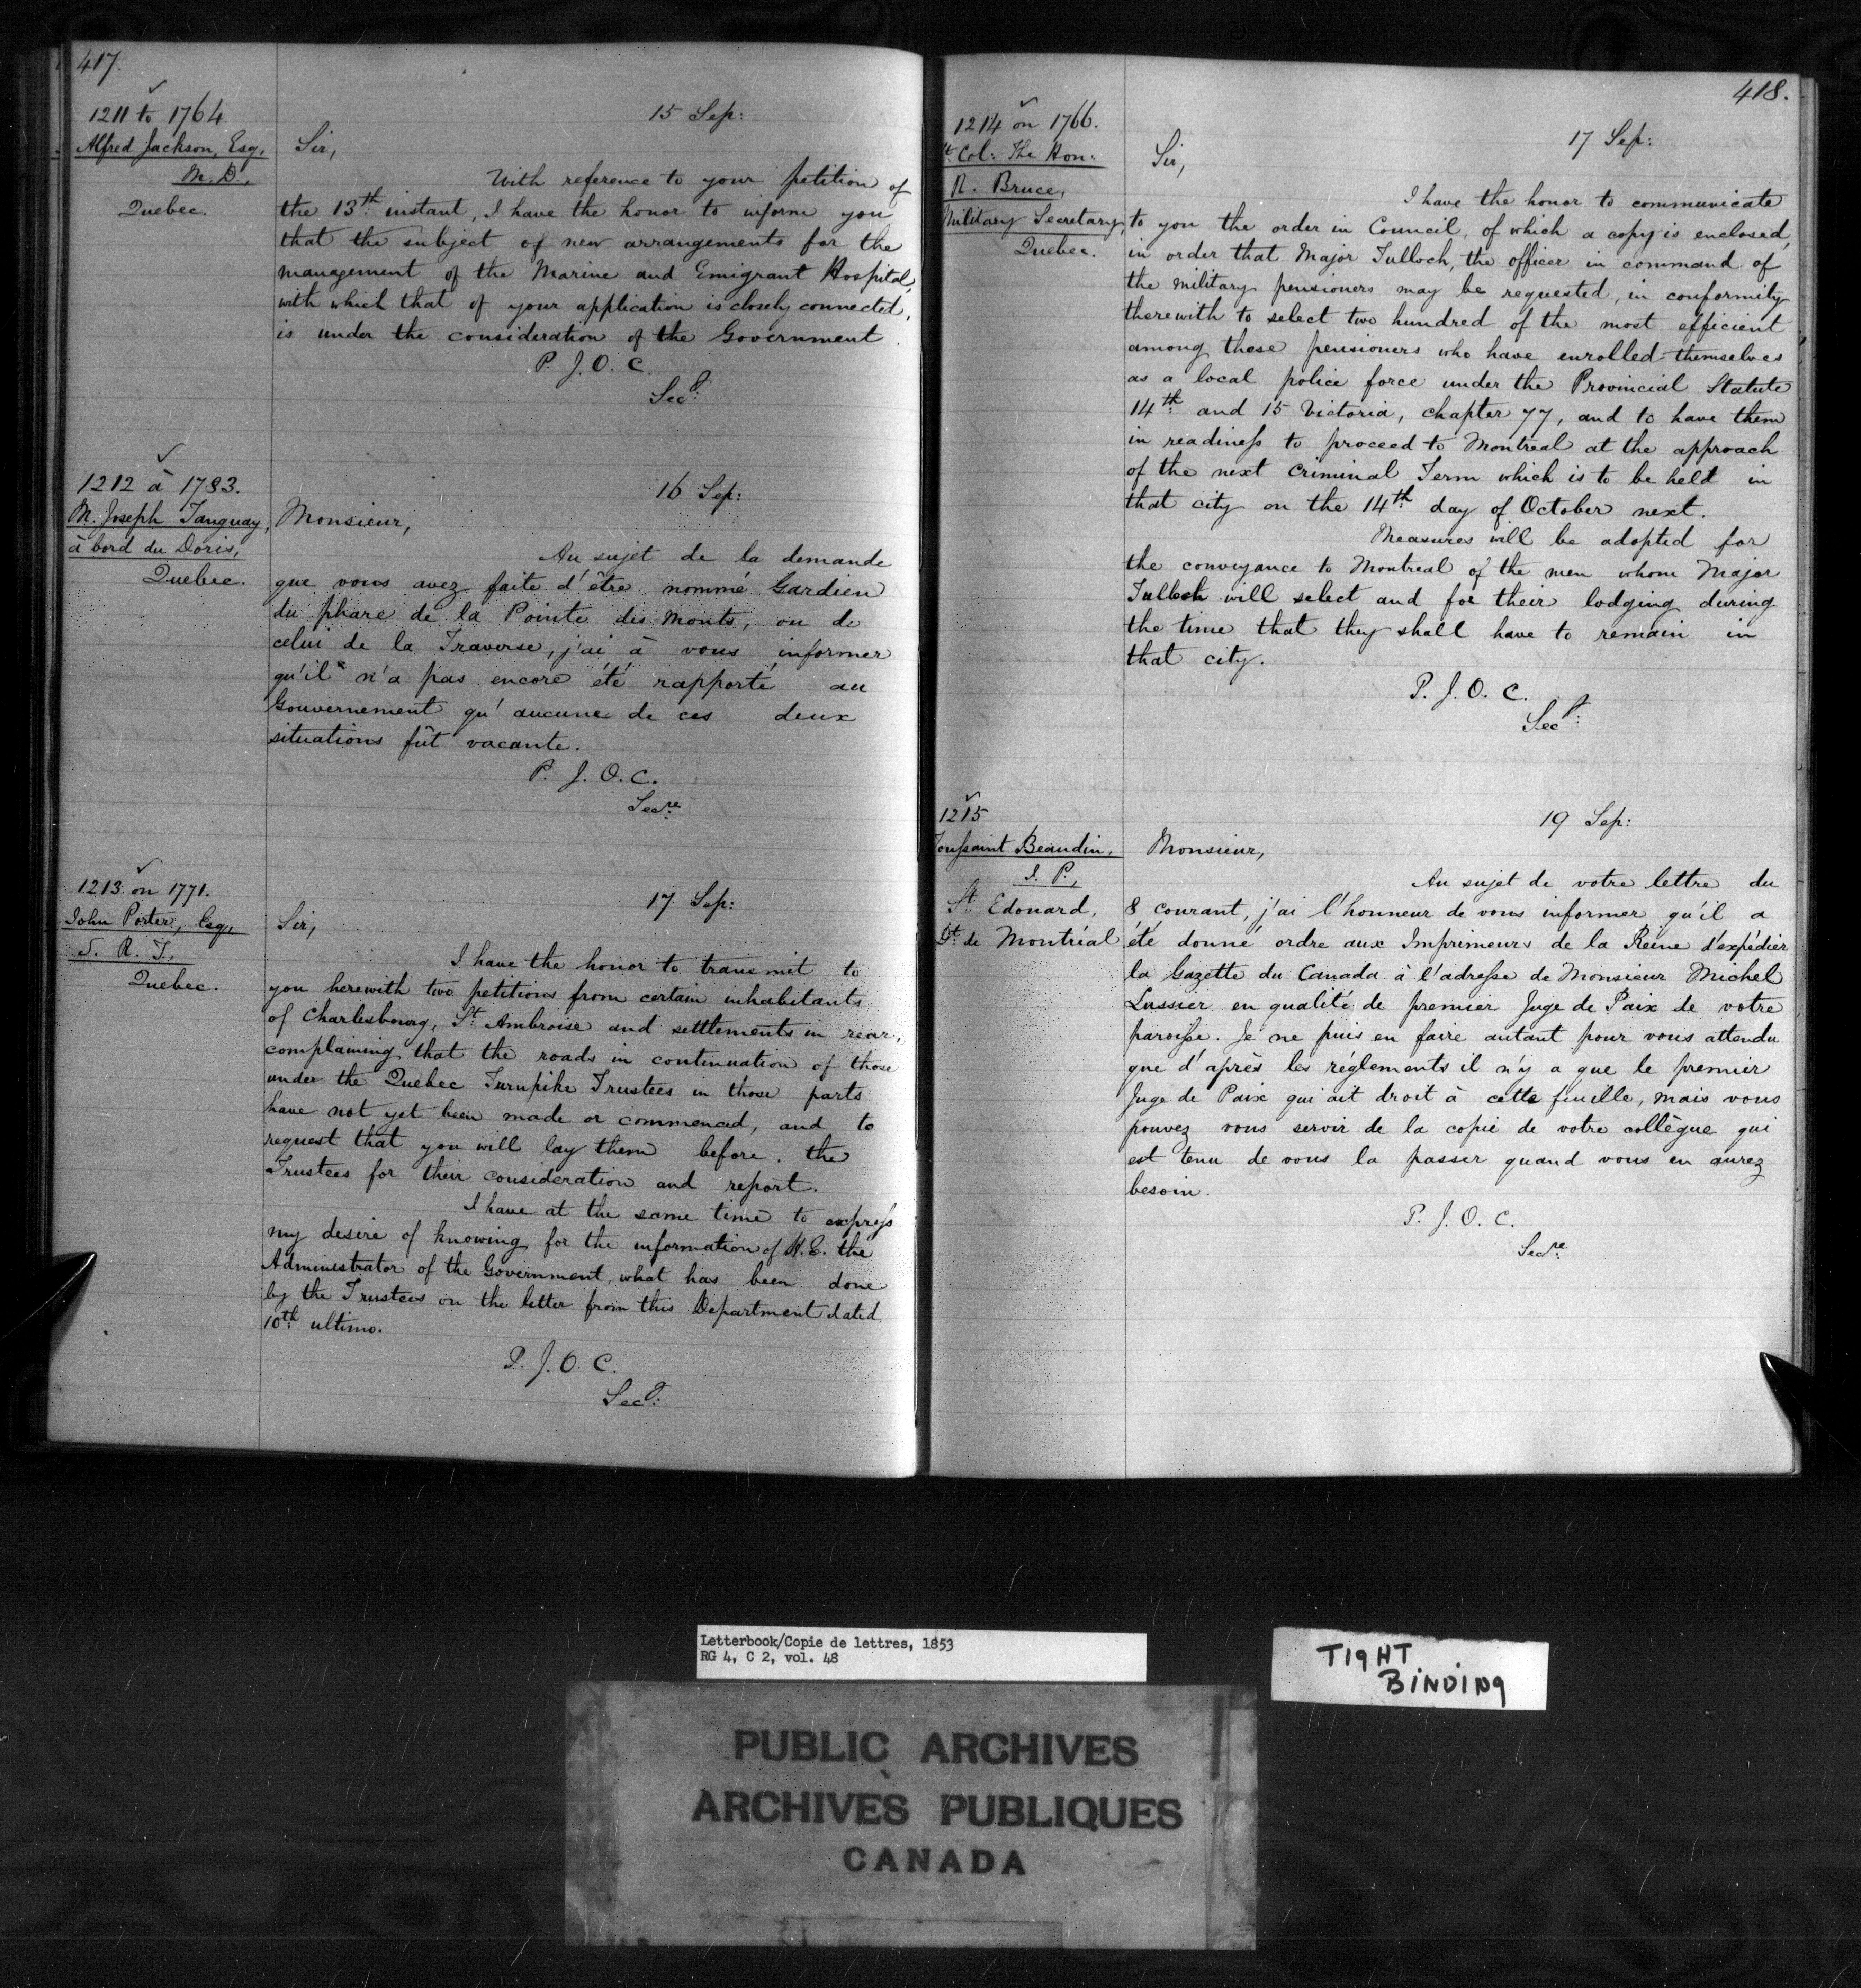 417.
1211 to 1764
Alfred Jackson, Esq,
M. D.,
Quebec.
15 Sep:
Sir,
With reference to your petition of
the 13th instant, I have the honor to inform you
that the subject of new arrangements for the
management of the Marine and Emigrant Hospital,
with which that of your application is closely connected,
is under the consideration of the Government.
P. J. O. C.
Secy:
1212 à 1783.
M. Joseph Tanguay,
à bord du Doris,
Quebec.
16 Sep:
Monsieur,
Au sujet de la demande
que vous avez faite d'être nommé Gardien
du phare de la Pointe des Monts, ou de
celui de la Traverse, j'ai à vous informer
qu'il n'a pas encore été rapporté au
Gouvernement qu'aucune de ces deux
situations fût vacante.
P. J. O. C.
Secre
1213 on 1771.
John Porter, Esq,,
S. R. T.,
Quebec.
17 Sep:
Sir,
I have the honor to transmit to
you herewith two petitions from certain inhabitants
of Charlesbourg, St. Ambroise and settlements in rear,
complaining that the roads in continuation of those
under the Quebec Turnpike Trustees in those parts
have not yet been made or commenced, and to
request that you will lay them before the
Trustees for their consideration and report.
I have at the same time to express
my desire of knowing for the information of H. E. the
Administrator of the Government, what has been done
by the Trustees on the letter from this Department dated
10th ultimo.
P. J. O. C.
Secy:
418.
1214 on 1766.
Lt. Col: The Hon:
R. Bruce,
Military Secretary,
Quebec.
17 Sep:
Sir,
I have the honor to communicate
to you the order in Council, of which a copy is enclosed,
in order that Major Tulloch, the officer in command of
the military pensioners may be requested, in conformity
therewith to select two hundred of the most efficient
among those pensioners who have enrolled themselves
as a local police force under the Provincial Statute
14th and 15 Victoria, chapter 77, and to have them
in readiness to proceed to Montreal at the approach
of the next Criminal Term which is to be held in
that city on the 14th day of October next.
Measures will be adopted for
the conveyance to Montreal of the men whom Major
Tulloch will select and for their lodging during
the time that they shall have to remain in
that city.
P. J. O. C.
Secy:
1215
Toussaint Beaudin,
J. P.,
St. Edouard,
Dt. de Montréal
19 Sep:
Monsieur,
Au sujet de votre lettre du
8 courant, j'ai l'honneur de vous informer qu'il a
été donné ordre aux Imprimeurs de la Reine d'expédier
la Gazette du Canada à l'adresse de Monsieur Michel
Lussier en qualité de premier Juge de Paix de votre
paroisse. Je ne puis en faire autant pour vous attendu
que d'après les réglements il n'y a que le premier
Juge de Paix qui ait droit à cette feuille, mais vous
pouvez vous servir de la copie de votre collègue qui
est tenu de vous la passer quand vous en aurez
besoin.
P. J. O. C.
Secre
Letterbook/Copie de lettres, 1853
RG 4, C 2, vol. 48
TIGHT
BINDING
PUBLIC ARCHIVES
ARCHIVES PUBLIQUES
CANADA